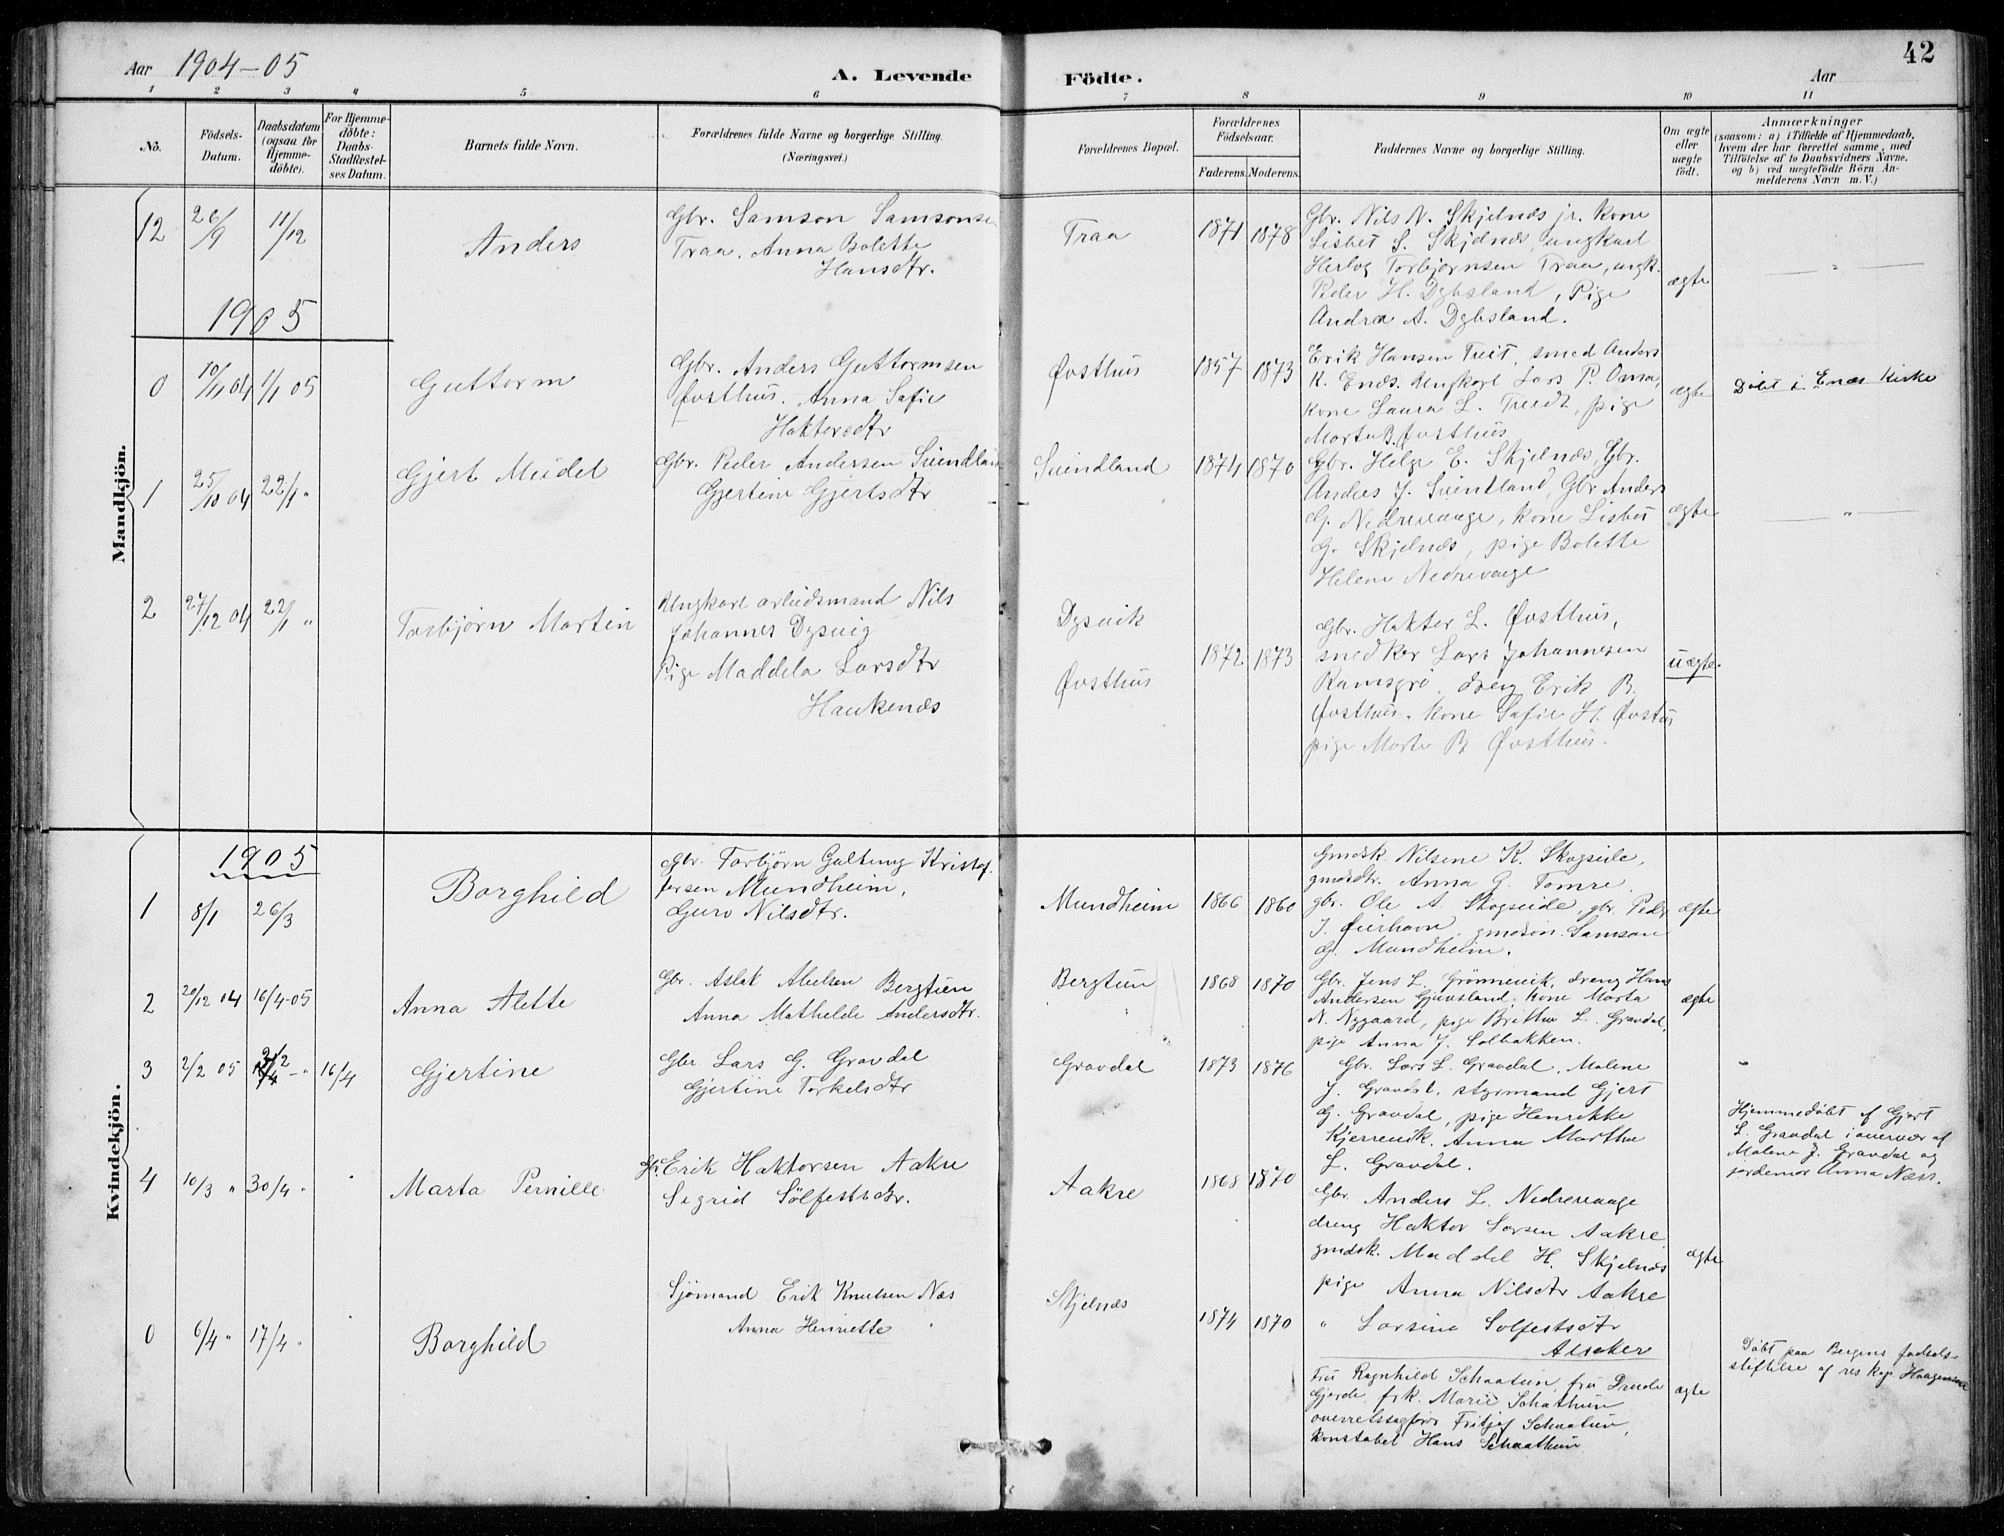 Aar 1904-05
A. Levende Födte.
Aar
42
1 2 3 4 5 6 7 8 9 10 11
No.
Födsels-Datum.
Daabsdatum (ogsaa for Hjemme-döbte).
For Hjemme-döbte: Daabs-Stadfæstel-ses Datum.
Barnets fulde Navn.
Forældrenes fulde Navne og borgerlige Stilling.
(Næringsvei.)
Forældrenes Bopæl.
Forældrenes Födselsaar.
Faderens. Moderens.
Faddernes Navne og borgerlige Stilling.
Om ægte eller uægte födt.
Anmærkninger
(saasom: a) i Tilfælde af Hjemmedaab,
hvem der har forrettet samme, med
Tilföielse af to Daabsvidners Navne.
og b) ved uægtefödte Börn An-
melderens Navn m. V.)
Mandkjön.
12 26/9 11/12 Anders
Gbr. Samson Samsonse
Traa. Anna Bolette
Hansdtr.
Traa 1871 1878
Gbr. Nils N. Skjelnæs jr. Kone
Lisbet S. Skjelnæs, ungkarl
Herlog Torbjørnsen Traa, ungk.
Peder H. Dybsland, Pige
Andrea A. Dybsland.
ægte
1905
0 10/11 04 1/1 05 Guttorm
Gbr. Anders Guttormsen
Øvsthus. Anna Safie
Haktorsdtr
Øvsthus 1857 1873
Erik Hansen Treit, smed Anders
K. Enæs. Ungkarl Lars P. Oma,
kone Laura L. Treidt, pige
Marta B. Øvsthus
ægte
Døbt i Enæs Kirke
1 25/10 04 22/1 " Gjert Meidel
Gbr. Peder Andersen Suindland
Gjertine Gjertsdtr
Suindland 1874 1870
Gbr. Helge E. Skjelnæs, Gbr.
Anders J. Suindland, Gbr Anders
G. Nedrevaage, kone Lisbet
G. Skjelnæs, pige Bolette
Helene Nedrevaage
ægte "
2 27/12 04 22/1 " Torbjørn Martin
Ungkarl arbeidsmand Nils
Johannes Dysvig
Pige Maddela Larsdtr
Haukenæs
Dysvik
Øvsthus
1872 1873
Gbr. Haktor L. Øvsthus,
snedker Lars Johannesen
Ramsgrø, dreng Erik B.
Øvsthus, kone Safie H. Øvsthus
pige Marta B Øvsthus.
uægte
Kvindekjön.
1905
1 8/1 26/3 Borghild
Gbr. Torbjørn Galtung Kristof-
fersen Mundheim,
Guro Nilsdtr.
Mundheim 1866 1860
Gmdsk. Nilsine K. Skogseide,
gmdsdtr. Anna G. Tomre,
gbr. Ole A. Skogseide, gbr. Peder
J. Øierhavn, gmdsøn. Samson
G. Mundheim.
ægte
2 20/12 04 16/4-05 Anna Alette
Gbr. Aslak Abelsen Bergtun
Anna Mathilde Andersdtr.
Bergtun 1868 1870
Gbr. Jens L. Grønnevik, dreng Hans
Andersen Gjuvsland, kone Marta
N. Nygaard, pige Britha L. Gravdal,
pige Anna J. Solbakken.
ægte
3 2/2 05 16/4 Gjertine
Gbr. Lars G. Gravdal
Gjertine Torkelsdtr
Gravdal 1873 1876
Gbr. Lars L. Gravdal, Malene
J. Gravdal, styrmand Gjert
G. Gravdal, pige Henrikke
Kjerrevik. Anna Martha
L. Gravdal.
Hjemmedøbt af Gjert
L. Gravdal i overvær af
Malene J. Gravdal og
jordemor Anna Næss.
4 10/3 " 30/4 " Marta Pernille
Gbr. Erik Haktorsen Aakre
Sigrid Sølfestsdtr.
Aakre 1868 1870
Gbr. Anders L. Nedrevaage
dreng Haktor Larsen Aakre
gmdsk. Maddel H. Skjelnæs
pige Anna Nilsdtr Aakre
" Larsine Solfestsdtr
Alsaker
ægte
0 6/4 " 17/4 " Borghild
Sjømand Erik Knutsen Næs
Anna Henriette
Skjelnæs 1874 1870
Fru Ragnhild Schaatun, fru Drude
Gjerde, frk. Marie Schathun
overretssagfører Fritjof Schaatun,
konstabel Hans Schaathun
ægte
Døbt paa Bergens fødsels-
stiftelse af res kap. Haagensen